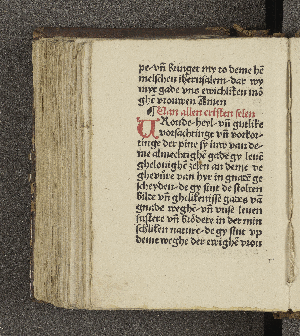 pe· vn̄ bringet my to deme hē
melschen iherusalem· dar wy
myt gade vns ewichliken mō
ghē vrouwen Amen
¶ Van allen cristen selen
VRoude· heyl· vn̄ gutlike
vorsachtinge vn̄ vorkor-
tinge der pine sy iuw van de-
me almechtighē gade gy leuē
ghelouighē zelen an deme ve
gheuüre van hyr in gnadē ge
scheyden· de gy sint de stolten
bilde vn̄ ghelikenisse gades vā
gnade weghē· vn̄ vnse leuen
sustere vn̄ brödere in der min
schliken nature· de gy sint vp
deme weghe der ewighē vrou